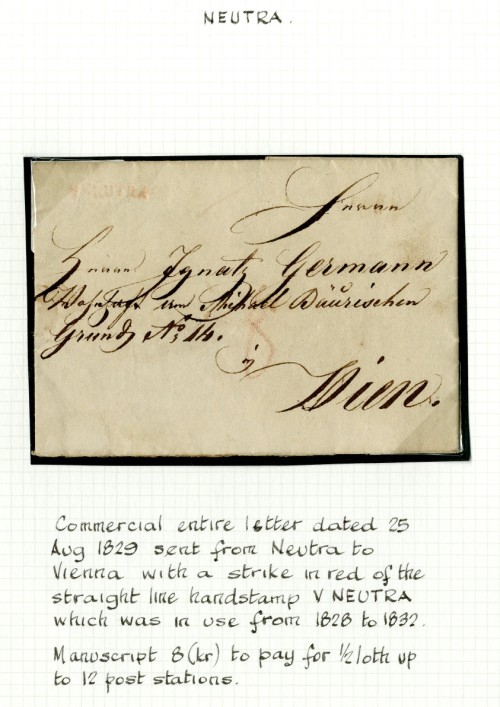 NEUTRA.
V NEUTRA
Herrn
Herrn Ignatz Germann
Wohnhaft am Michael Bäurischen
Grund No 14.
in
Wien.
8
Commercial entire letter dated 25
Aug 1829 sent from Neutra to
Vienna with a strike in red of the
straight line handstamp V NEUTRA
which was in use from 1828 to 1832.
Manuscript 8(kr) to pay for ½ loth up
to 12 post stations.